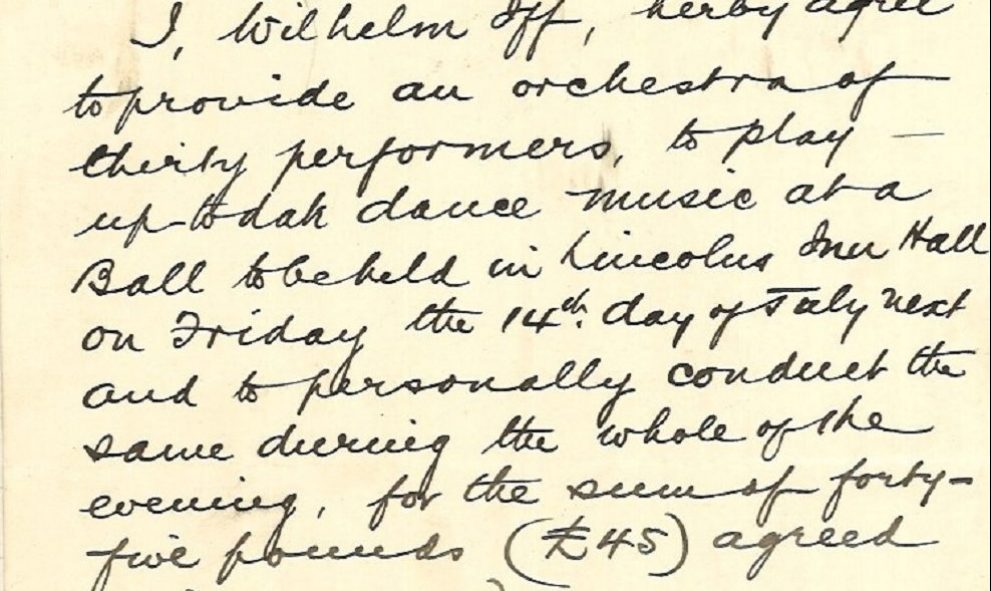 I, Wilhelm Iff, herby agree
to provide an orchestra of
thirty performers, to play —
up-to date dance music at a
Ball to be held in Lincolns Inn Hall
on Friday the 14th. day of July next
and to personally conduct the
same during the whole of the
evening, for the sum of forty-
five pounds (£45) agreed